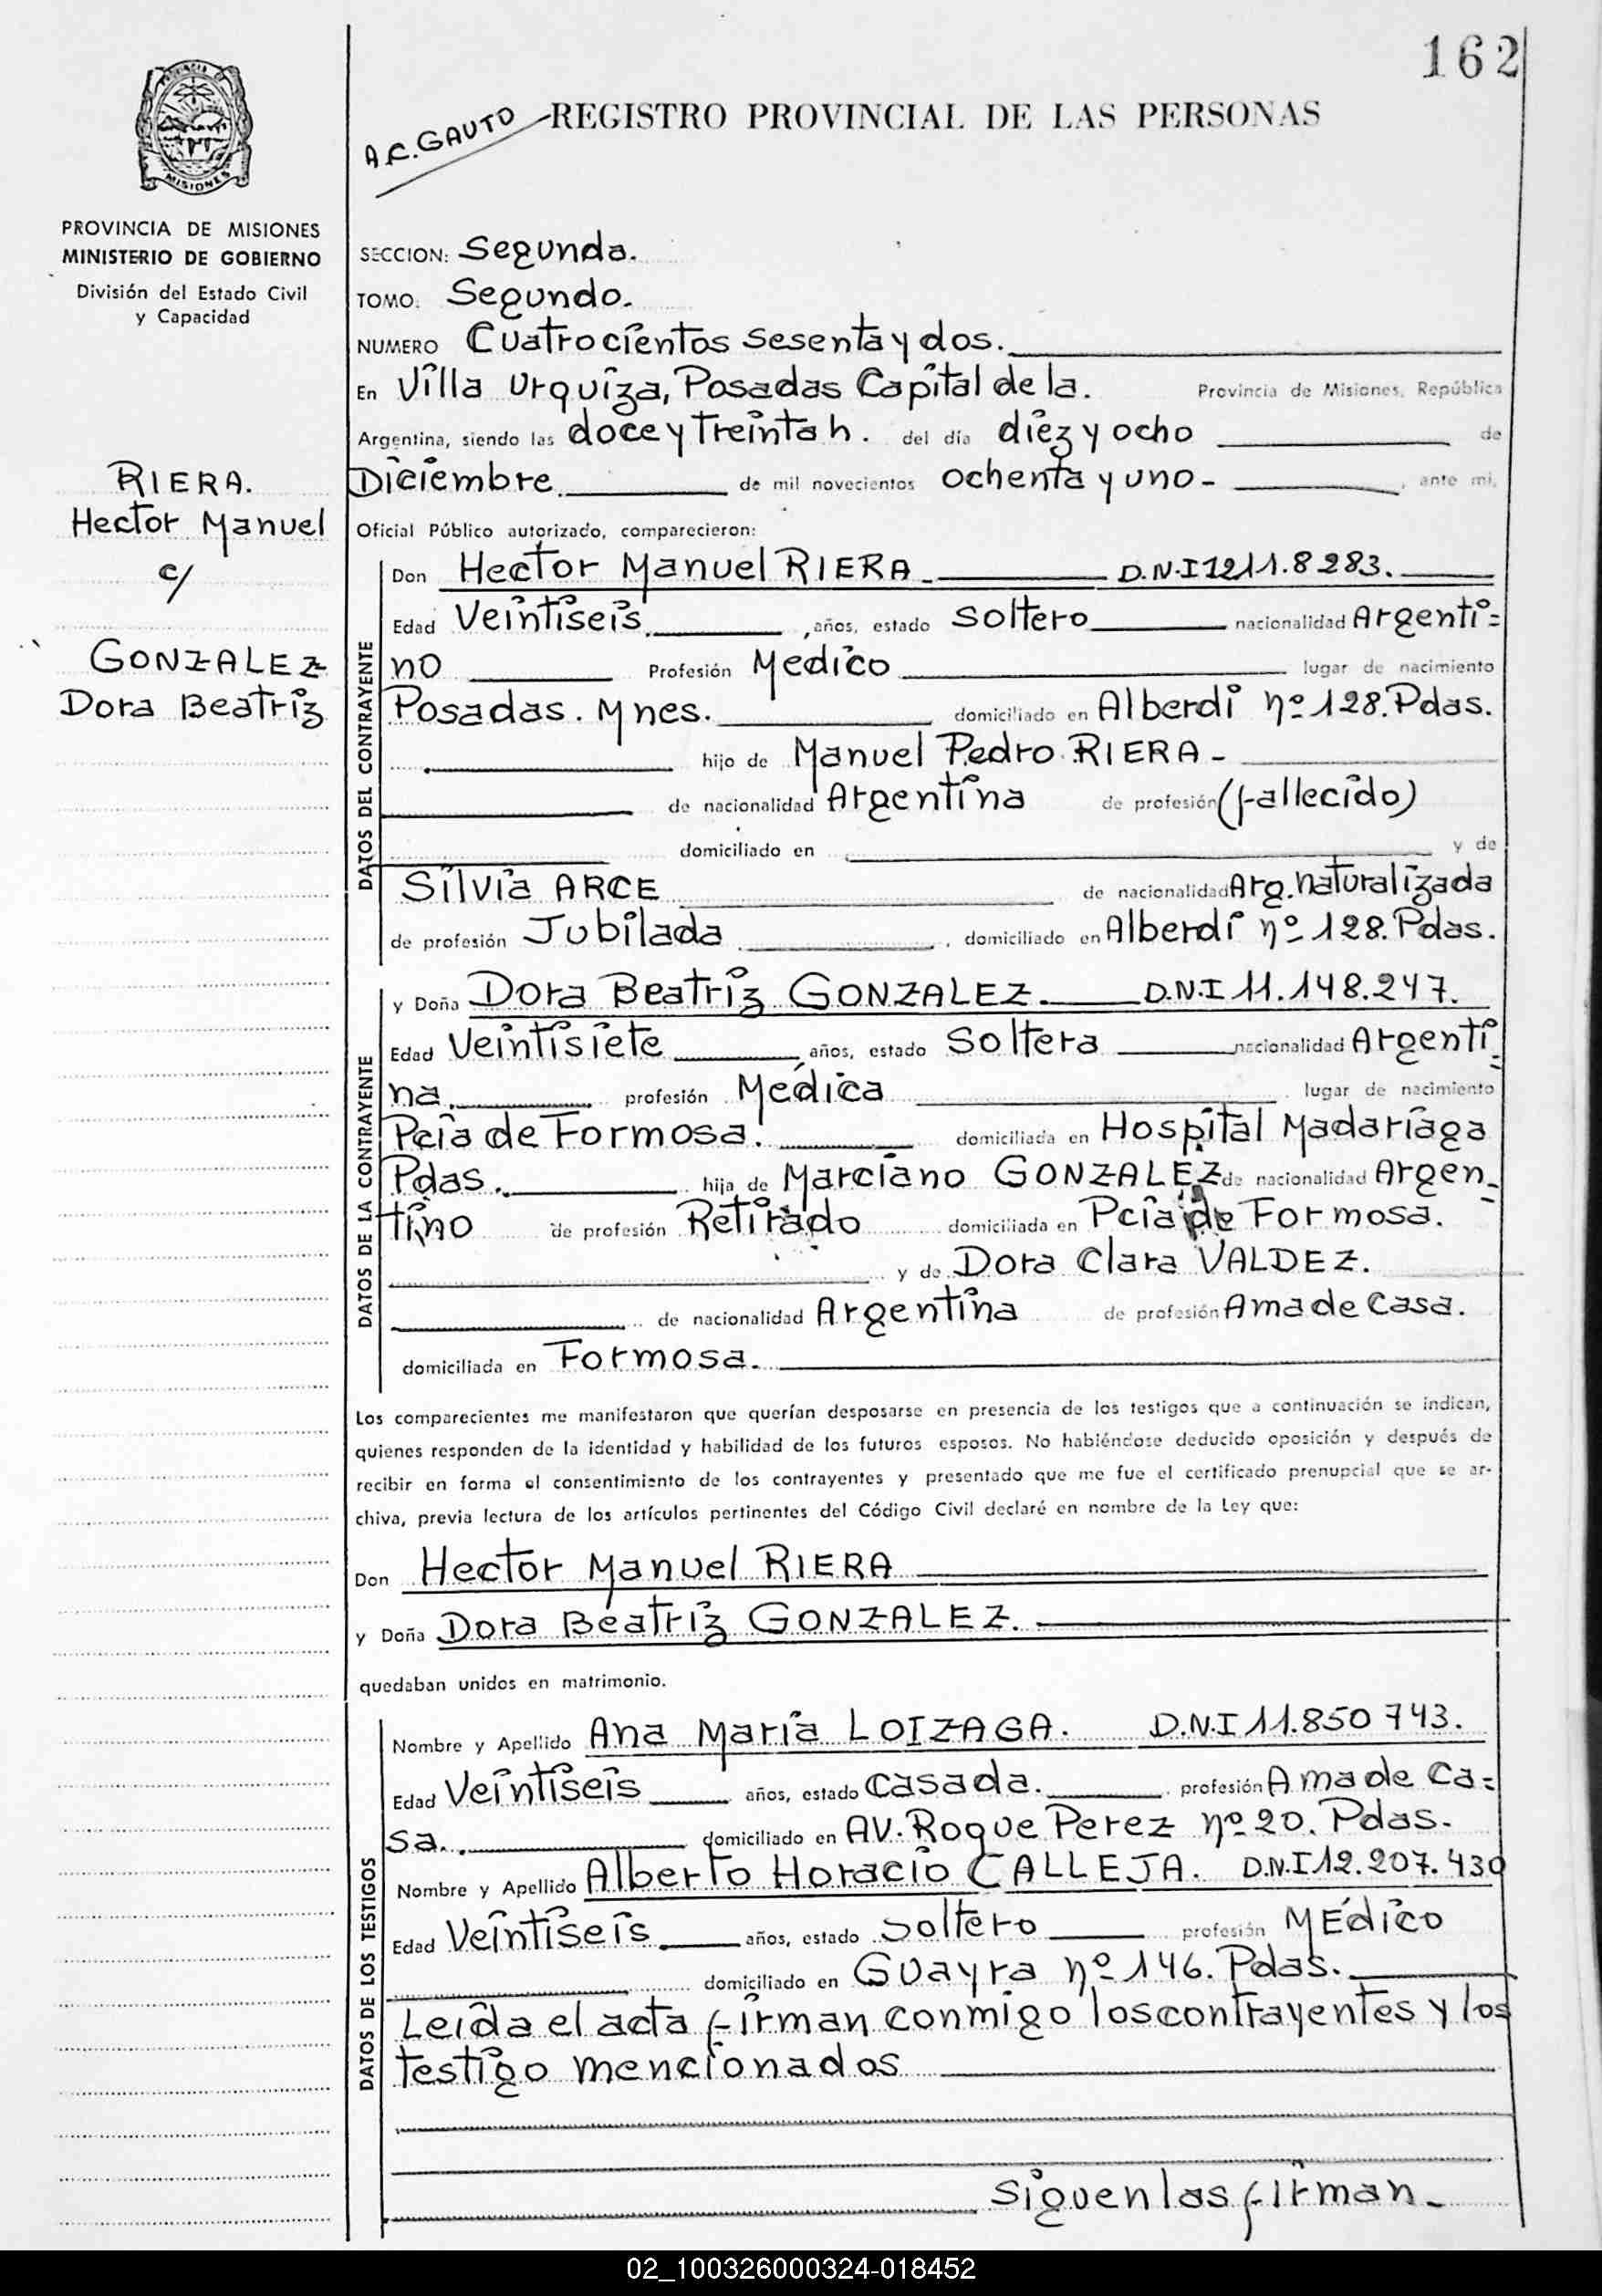 162
A.C. GAUTO
REGISTRO PROVINCIAL DE LAS PERSONAS
MISIONES
PROVINCIA DE MISIONES
MINISTERIO DE GOBIERNO
División del Estado Civil
y Capacidad
RIERA.
Hector Manuel
c/
GONZALEZ
Dora Beatriz
SECCION: Segunda.
TOMO: Segundo.
NUMERO Cuatrocientos sesenta y dos.
En Villa Urquiza, Posadas Capital de la. Provincia de Misiones, República
Argentina, siendo las doce y Treinta h. del día diez y ocho de
Diciembre. de mil novecientos ochenta y uno - , ante mí,
Oficial Público autorizado, comparecieron:
DATOS DEL CONTRAYENTE
Don Hector Manuel RIERA - D.N.I 1211.8283.
Edad Veintiseis , años, estado Soltero nacionalidad Argenti=
no Profesión Medico lugar de nacimiento
Posadas. Mnes. domiciliado en Alberdi nº 128. Pdas.
hijo de Manuel Pedro RIERA -
de nacionalidad Argentina de profesión (fallecido)
domiciliado en y de
Silvia ARCE de nacionalidad Arg. naturalizada
de profesión Jubilada , domiciliado en Alberdi nº 128. Pdas.
DATOS DE LA CONTRAYENTE
y Doña Dora Beatriz GONZALEZ. D.N.I 11.148.247.
Edad Veintisiete años, estado Soltera nacionalidad Argenti
na. profesión Médica lugar de nacimiento
Pcia de Formosa. domiciliada en Hospital Madariaga
Pdas. hija de Marciano GONZALEZ de nacionalidad Argen-
tino de profesión Retirado domiciliada en Pcia de Formosa.
y de Dora Clara VALDEZ.
de nacionalidad Argentina de profesión Ama de Casa.
domiciliada en Formosa.
Los comparecientes me manifestaron que querían desposarse en presencia de los testigos que a continuación se indican,
quienes responden de la identidad y habilidad de los futuros esposos. No habiéndose deducido oposición y después de
recibir en forma el consentimiento de los contrayentes y presentado que me fue el certificado prenupcial que se ar-
chiva, previa lectura de los artículos pertinentes del Código Civil declaré en nombre de la Ley que:
Don Hector Manuel RIERA
y Doña Dora Beatriz GONZALEZ.
quedaban unidos en matrimonio.
DATOS DE LOS TESTIGOS
Nombre y Apellido Ana María LOIZAGA. D.N.I 11.850 743.
Edad Veintiseis años, estado casada. profesión Ama de Ca=
sa. domiciliado en AV. Roque Perez nº 20. Pdas.
Nombre y Apellido Alberto Horacio CALLEJA. D.N.I 12.207.430
Edad Veintiseis años, estado soltero profesión MÉdico
domiciliado en Guayra nº 146. Pdas.
Leida el acta firman conmigo los contrayentes y los
testigo mencionados
siguen las firman.
02_100326000324-018452